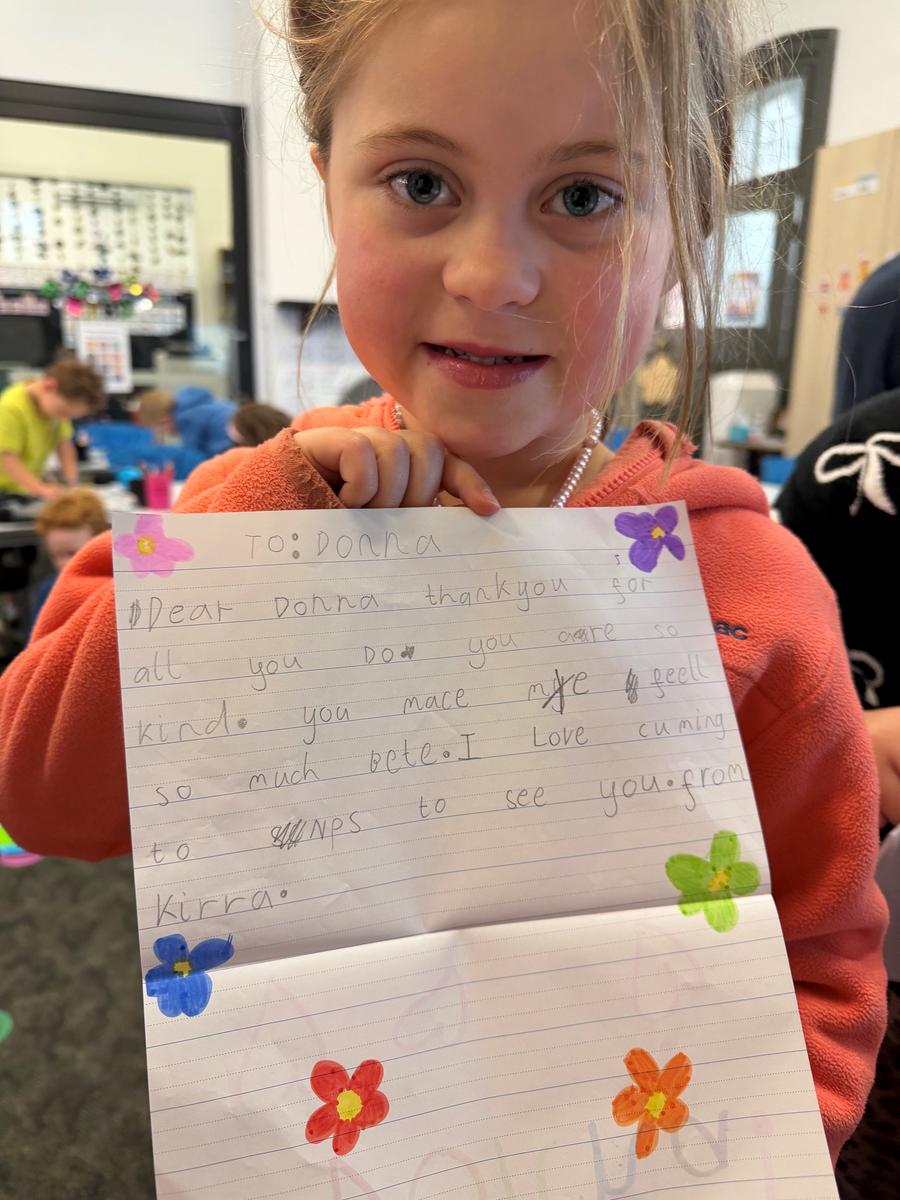 TO: Donna
Dear Donna thankyou for
all you Do you are so
kind. you mace me feell
so much bete. I Love cuming
to NPS to see you. from
Kirra.
ac